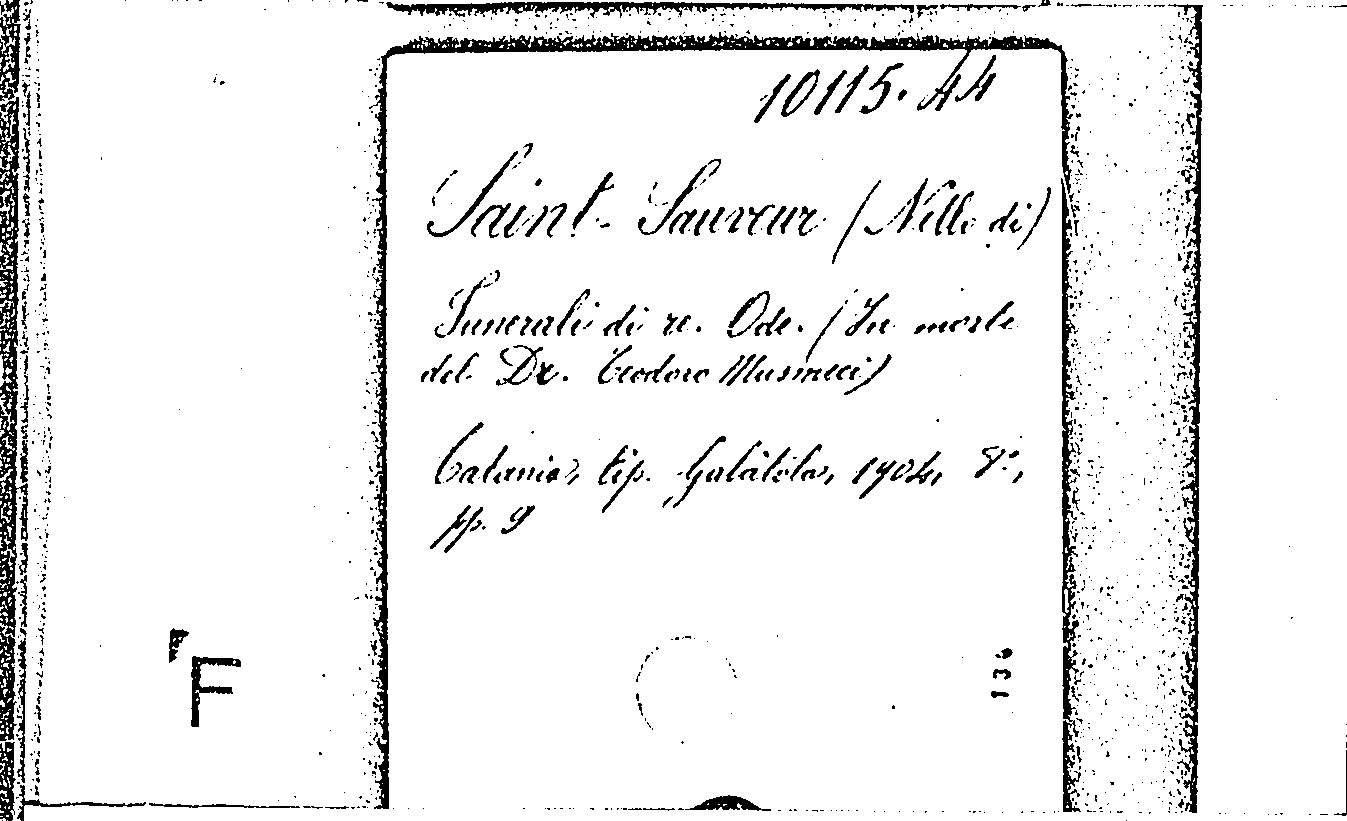 10115.44
Saint-Sauveur (Nello di)
Funerali di re. Ode. (In morte
del Dr. Teodoro Musmeci)
Catania, tip. Galàtola, 1904, 8°,
pp. 9
F
136